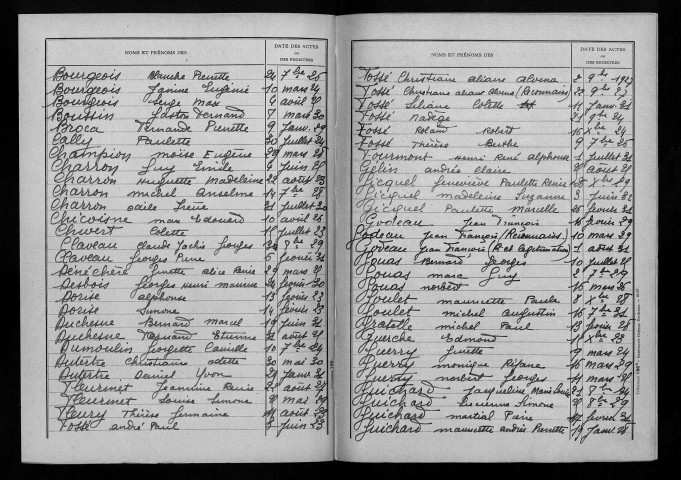 NOMS ET PRÉNOMS DES
DATE DES ACTES
OU
DES REGISTRES
Bourgeois Blanche Pierrette 24 7bre 25
Bourgeois Janine Eugénie 10 mars 24
Bourgeois Serge Max 4 avril 30
Boussin Gaston Fernand 7 mars 30
Broca Fernande Pierrette 9 Janv. 29
Cally Paulette 30 Juillet 24
Champion Moise Eugène 29 mars 25
Charron Guy Emile 4 Juin 25
Charron Huguette Madeleine 22 août 23
Charron michel Anselme 14 7bre 28
Charron odile Irène 21 Juillet 30
Chicoisne max Edouard 10 avril 26
Chuvert Colette 18 Juillet 23
Claveau Claude Jackie Georges 30 8bre 29
Claveau Georges Pierre 5 février 31
Dénéchère Ginette alice Renée 29 mars 25
Desbois Georges Henri maurice 24 février 30
Dorise alphonse 13 février 23
Dorise Simone 14 février 23
Duchesne Bernard Marcel 19 Juin 31
Duchesne Fernand Etienne 31 août 28
Dumoulin Georgette Camille 10 7bre 29
Dutertre Christiane odette 30 mai 30
Dutertre Daniel Yvon 29 Janv. 31
Fleurinet Jeannine Renée 28 août 27
Fleurinet Louise Simone 8 mai 29
Fleury Thérèse Germaine 14 août 29
Fossé andré Paul 3 Juin 23
NOMS ET PRÉNOMS DES
DATE DES ACTES
OU
DES REGISTRES
Fossé Christiane aliane alvina 2 9bre 1927
Fossé Christiane aliane alvina (Reconnais.) 22 9bre 27
Fossé Liliane Colette 11 Janv. 31
Fossé Nadège 21 9bre 24
Fossé Roland Robert 16 Xbre 24
Fossé Thérèse Berthe 9 7bre 25
Fourmont Henri René alphonse 1 Juillet 31
Gélin andrée Claire 2 août 25
Gicquel Geneviève Paulette Renée 25 Xbre 29
Gicquel madeleine Suzanne 3 Juin 32
Gicquel Paulette Marcelle 25 février 31
Godeau Jean François 16 février 29
Godeau Jean François (Reconnais.) 10 mars 29
Godeau Jean François (R et Légitimation) 1 août 31
Gouas Bernard Georges 10 Juillet 25
Gouas marc Guy 2 7bre 29
Gouas norbert 16 mars 26
Goulet mauricette Paule 8 Xbre 28
Goulet michel augustin 16 7bre 31
Gratolle michel Paul 13 février 28
Guerche Edmond 11 Xbre 23
Guerry Ginette 9 mars 24
Guerry monique 16 mars 29
Guerry norbert Georges 11 mars 31
Guichard Jacqueline Marie Louise 21 8bre 24
Guichard Lucienne Simone 2 8bre 29
Guichard martial Paire 17 février 31
Guichard mauricette andrée Pierrette 19 Janv. 28